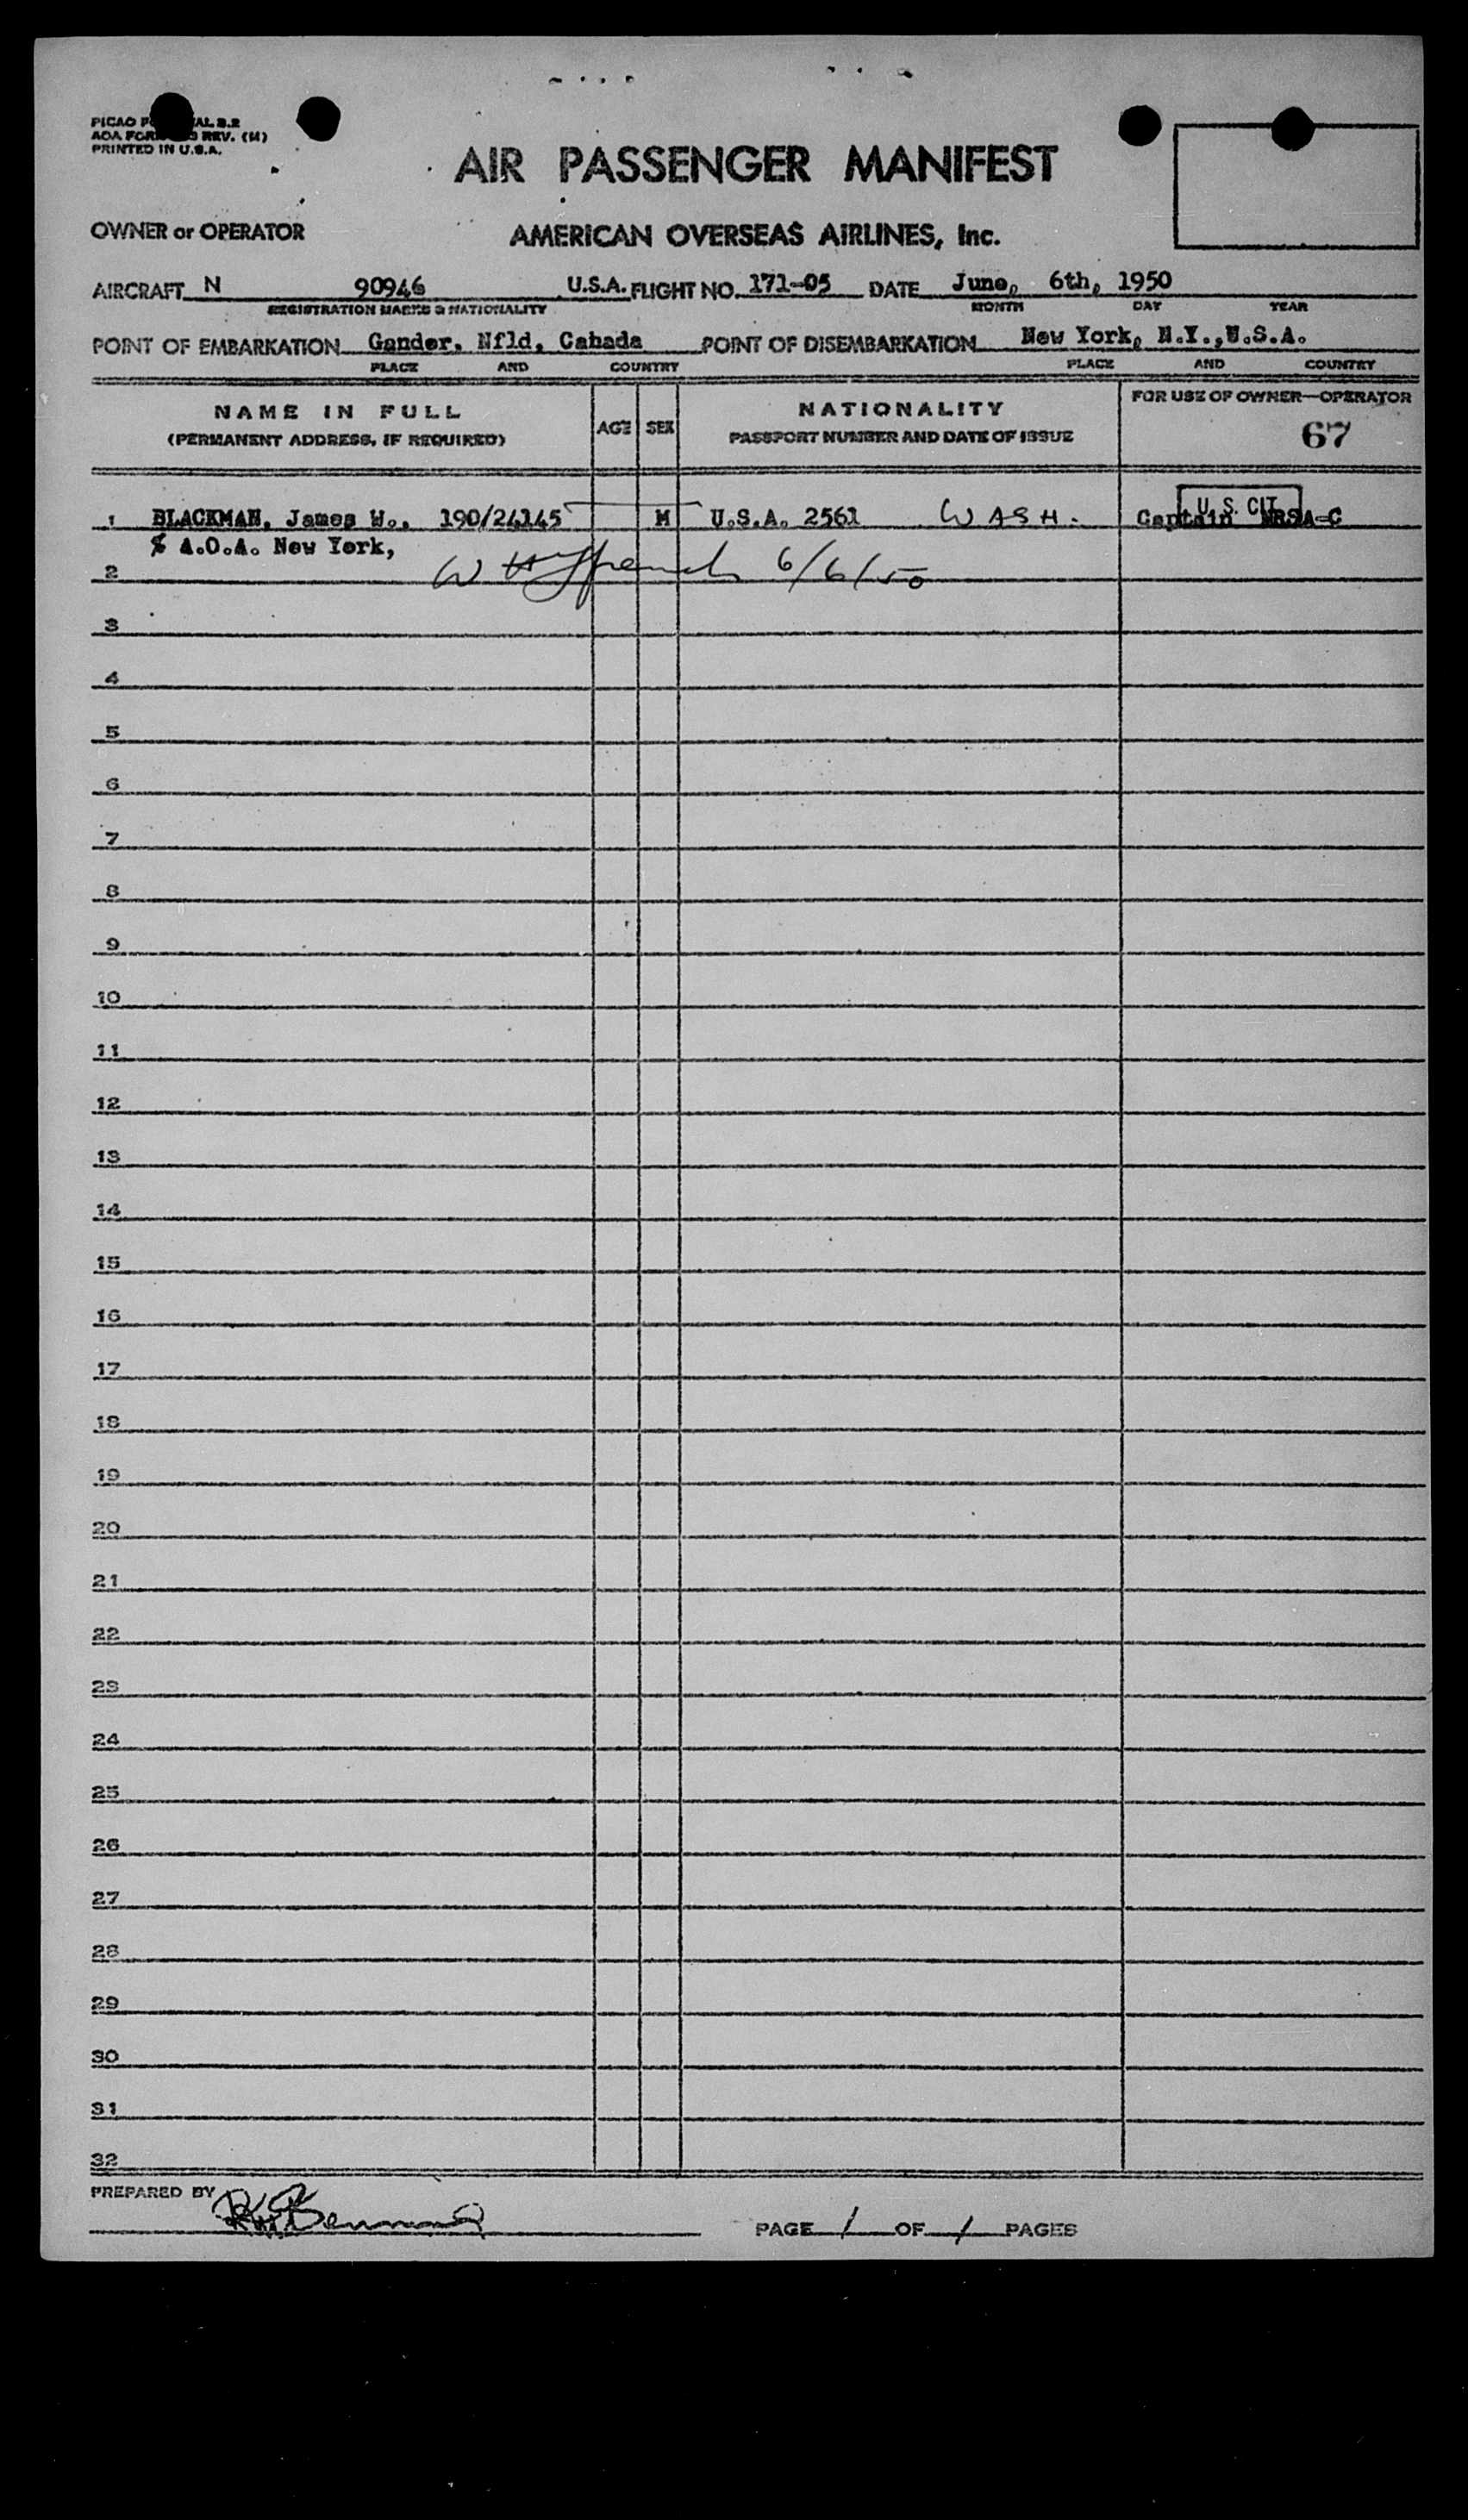 PICAO
AOA REV. (M)
PRINTED IN U.S.A.
AIR PASSENGER MANIFEST
OWNER or OPERATOR AMERICAN OVERSEAS AIRLINES, Inc.
AIRCRAFT N 90946 U.S.A. FLIGHT NO. 171-05 DATE June, 6th, 1950
REGISTRATION MARKS & NATIONALITY MONTH DAY YEAR
POINT OF EMBARKATION Gander, Nfld, Cahada POINT OF DISEMBARKATION New York, N.Y.,U.S.A.
PLACE AND COUNTRY PLACE AND COUNTRY
NAME IN FULL AGE SEX NATIONALITY FOR USE OF OWNER—OPERATOR
(PERMANENT ADDRESS, IF REQUIRED) PASSPORT NUMBER AND DATE OF ISSUE 67
U. S. CIT.
1 BLACKMAN, James W., 190/24145 M U.S.A. 2561 WASH. Captain NRSA-C
% A.O.A. New York,
2 6/6/50
3
4
5
6
7
8
9
10
11
12
13
14
15
16
17
18
19
20
21
22
23
24
25
26
27
28
29
30
31
32
PREPARED BY
PAGE 1 OF 1 PAGES